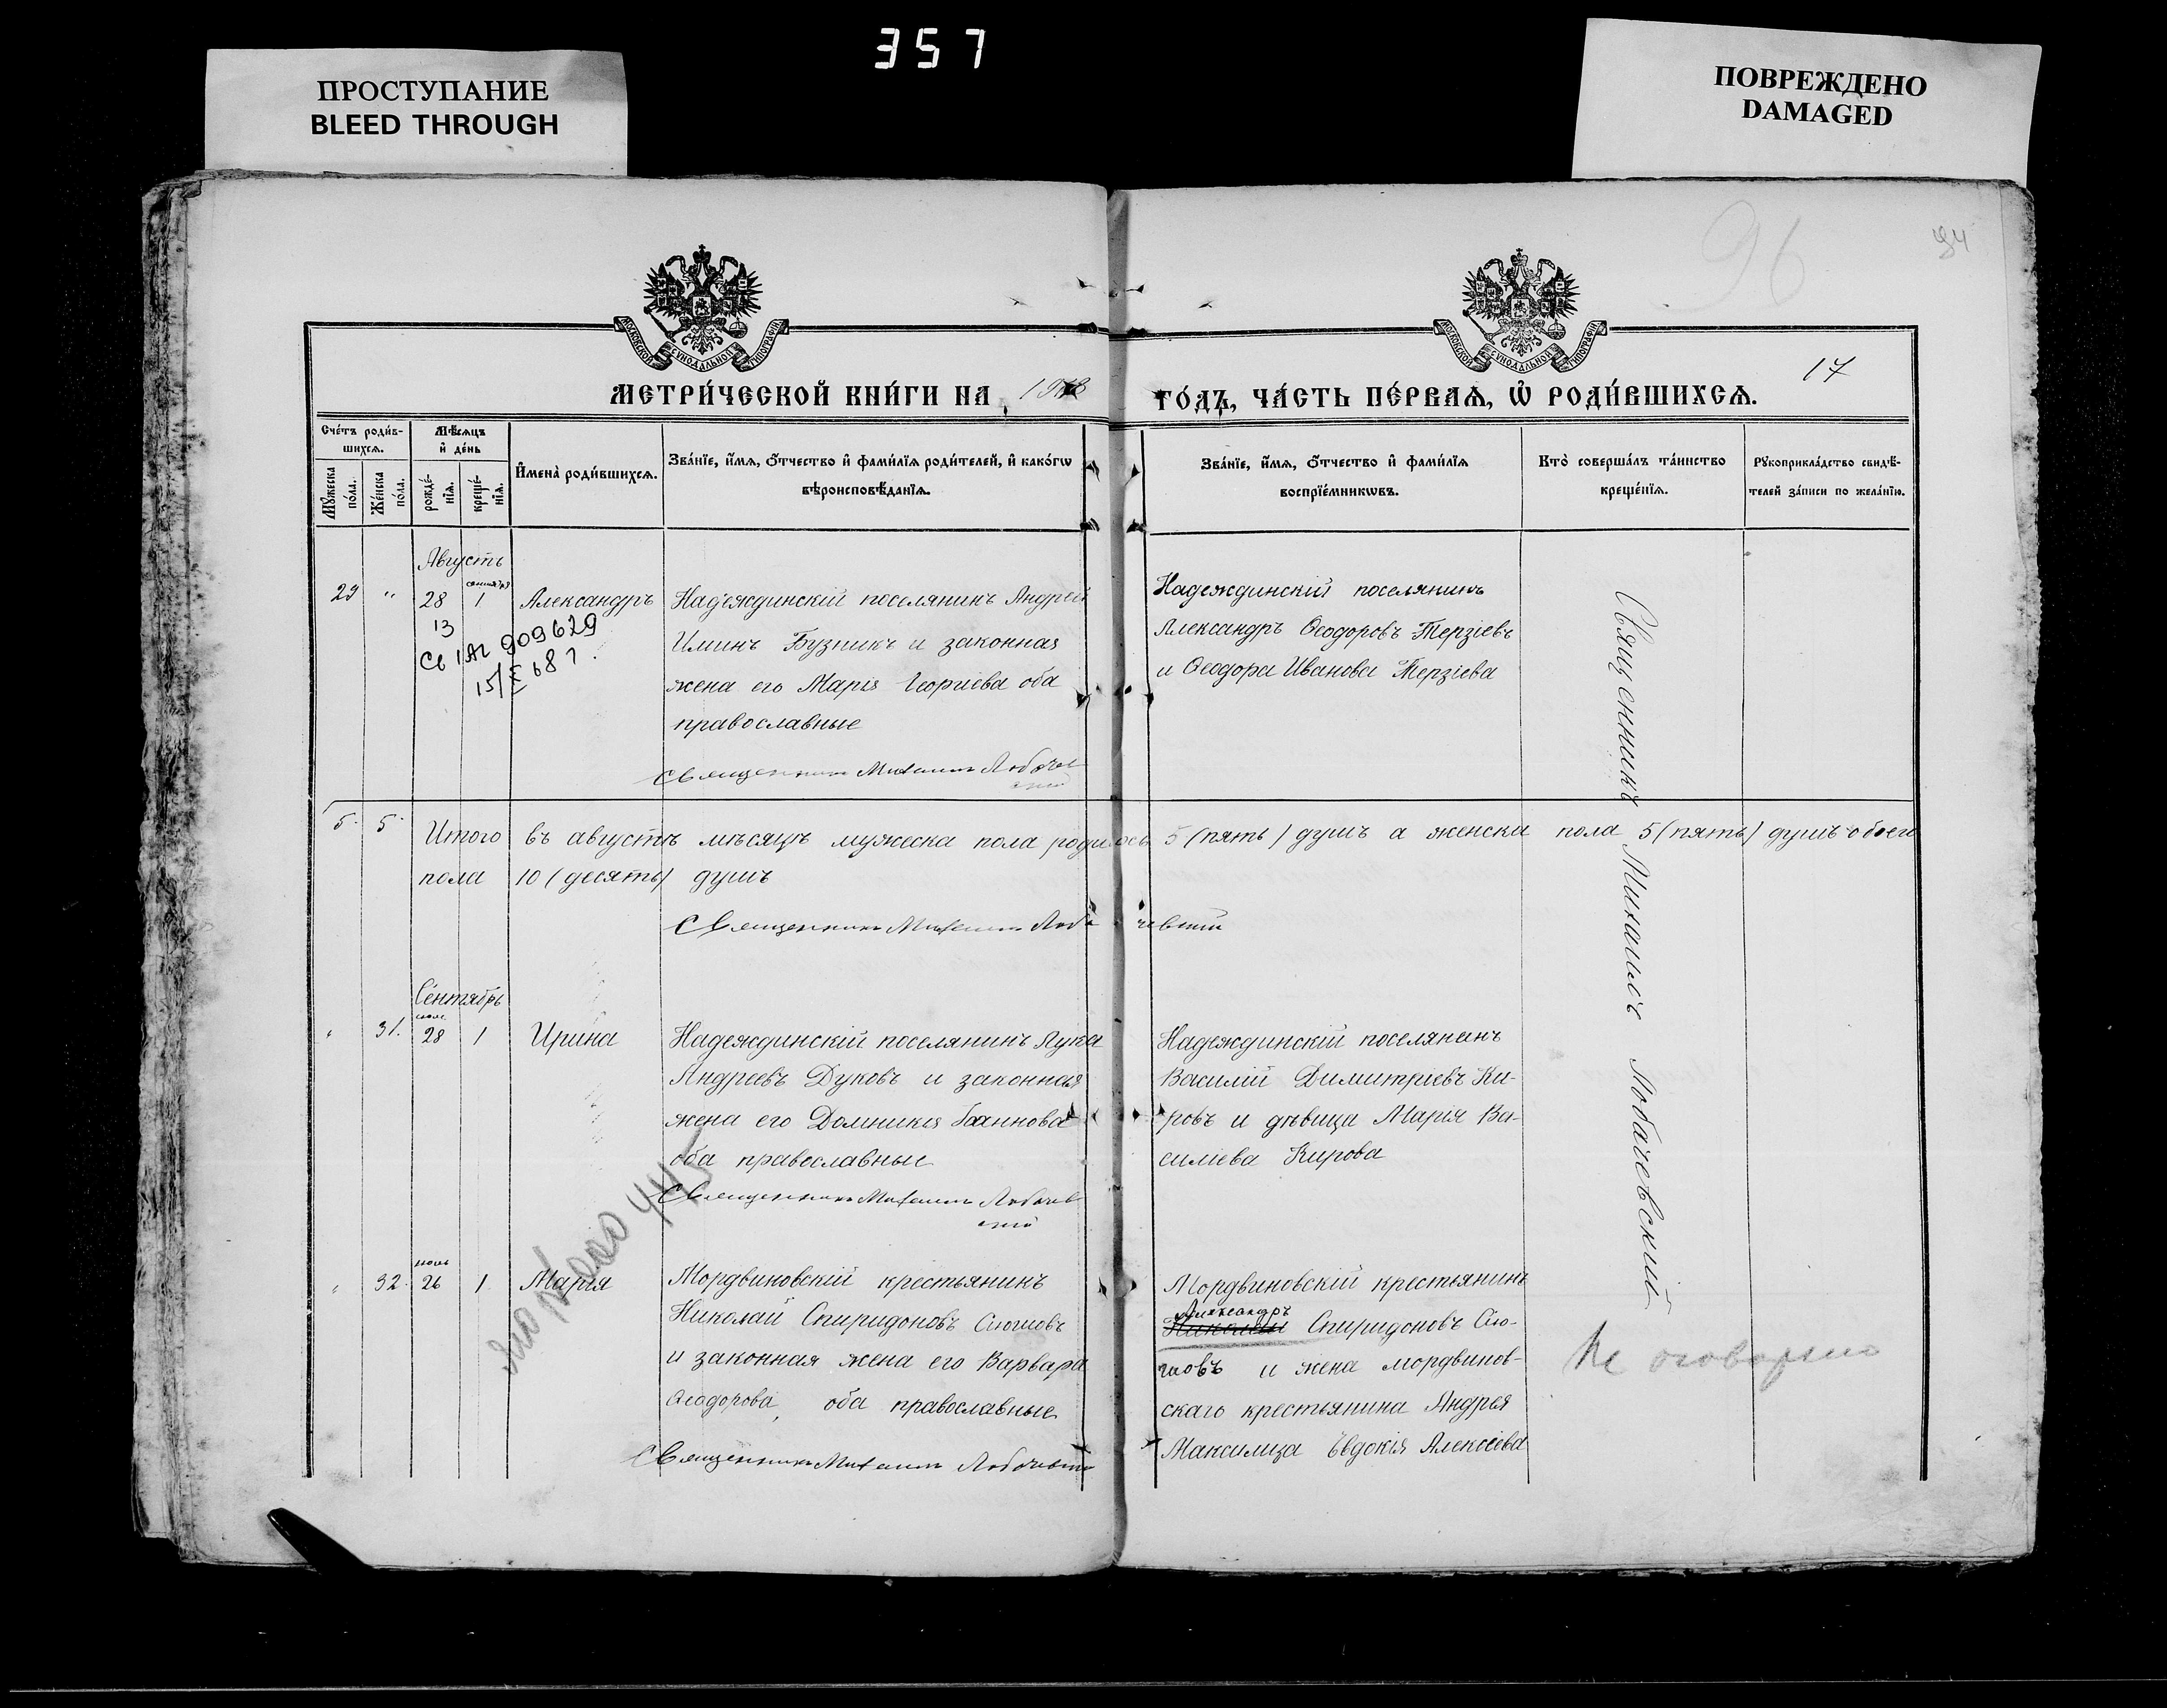 357
ПРОСТУПАНИЕ
BLEED THROUGH
ПОВРЕЖДЕНО
DAMAGED
96
94
МОСКОВСКОЙ СУНОДАЛЬНОЙ ТИПОГРАФІИ
МОСКОВСКОЙ СУНОДАЛЬНОЙ ТИПОГРАФІИ
17
МЕТРИ́ЧЕСКОЙ КНИ́ГИ НА
ГО́ДЪ, ЧА́СТЬ ПЕ́РВАѦ, Ѽ РОДИ́ВШИХСѦ.
Сче́тъ роди́в-
шихсѧ.
Мꙋ́жеска по́ла.
Же́нска по́ла.
Мѣ́сѧцъ
и҆ де́нь
рожде́-нїѧ.
креще́-нїѧ.
И҆мена̀ роди́вшихсѧ.
Зва́нїе, и҆́мѧ, ѻ҆́тчество и҆ фами́лїѧ роди́телей, и҆ како́гѡ
вѣроисповѣ́данїѧ.
Зва́нїе, и҆́мѧ, ѻ҆́тчество и҆ фами́лїѧ
воспрїе́мникѡвъ.
Кто̀ соверша́лъ та́инство
креще́нїѧ.
Рꙋкоприкла́дство свидѣ́-
телей за́писи по жела́нїю.
Августъ
29 " 28 1 Александръ
13
909629
Надеждинскій поселянинъ Андрей
Илиинъ Бузникъ и законная
жена его Марія Георгіева оба
православные
Священникъ Михаилъ Лобачев
скій
Надеждинскій поселянинъ
Александръ Ѳеодоровъ Терзіевъ
и Ѳеодора Иванова Терзіева
Священникъ Михаилъ Лобачевскій
5. 5. Итого въ августѣ мѣсяцѣ мужеска пола родилось 5 (пять) душъ а женска пола 5 (пять) душъ обоего
пола 10 (десять) душъ
Священникъ Михаилъ Лобачевскій
Сентябрь
" 31. 28 1 Ирина
Надеждинскій поселянинъ Лука
Андреевъ Дуковъ и законная
жена его Домникія
оба православные
Священникъ Михаилъ Лобачев
скій
Надеждинскій поселянинъ
Василій Димитріевъ Ки-
ровъ и дѣвица Марія Ва-
силіева Кирова
" 32. 26 1 Марія
Мордвиновскій крестьянинъ
Николай Спиридоновъ
и законная жена его Варвара
Ѳеодорова, оба православные
Священникъ Михаилъ Лобачевскій
Мордвиновскій крестьянинъ
Александръ
Николай Спиридоновъ
и жена мордвинов-
скаго крестьянина Андрея
Евдокія Алексѣева
Не оговорено